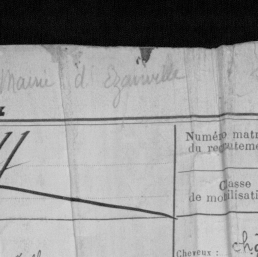 Mairie d'Ezanville
Numéro matr
du recruteme
Classe
de mobilisati
Cheveux : châ